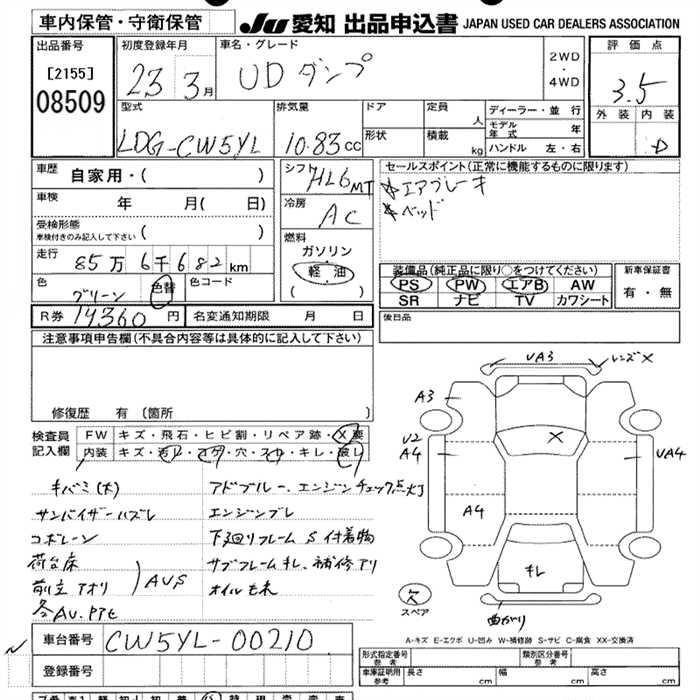 車内保管・守衛保管
JU 愛知 出品申込書 JAPAN USED CAR DEALERS ASSOCIATION
出品番号
[2155]
08509
初度登録年月
23 3月
車名・グレード
UDダンプ
2WD
・
4WD
評価点
3.5
外装 内装
D
型式
LDG-CW5YL
排気量
10.83cc
ドア
定員
人
形状
積載
kg
ディーラー・並行
モデル年式 年
ハンドル 左・右
車歴
自家用・( )
車検
年 月( 日)
受検形態
車検付きのみ記入して下さい ( )
走行
85万6千682km
色
グリーン
色替
色コード
R券 14360円
名変通知期限 月 日
シフト
HL6MT
冷房
AC
燃料
ガソリン
軽油
( )
セールスポイント(正常に機能するものに限ります)
☆エアブレーキ
☆ベッド
装備品(純正品に限り○をつけてください)
PS PW エアB AW
SR ナビ TV カワシート
新車保証書
有・無
後日品
注意事項申告欄(不具合内容等は具体的に記入して下さい)
修復歴 有(箇所 )
検査員記入欄
FW キズ・飛石・ヒビ割・リペア跡・X要
内装 キズ・汚レ・コゲ・穴・スレ・キレ・破レ
キバミ(大)
サンバイザーハズレ
コボレーン
荷台床
前立アオリ
各AV.PTE
AUS
アドブルー、エンジンチェック点灯
エンジンブレ
下廻りフレームS付着物
サブフレームキレ、補修アリ
オイルもれ
UA3
レンズX
A3
U2
A4
UA4
X
A4
キレ
欠
スペア
曲がり
A-キズ E-エクボ U-凹み W-補修跡 S-サビ C-腐食 XX-交換済
車台番号 CW5YL-00210
登録番号
形式指定番号
参考
類別区分番号
参考
車庫証明用
参考
長さ cm
幅 cm
高さ cm